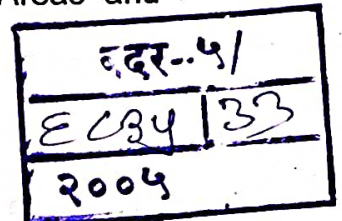 Areas and
बदर-५/
६८३५ | ३३
२००५